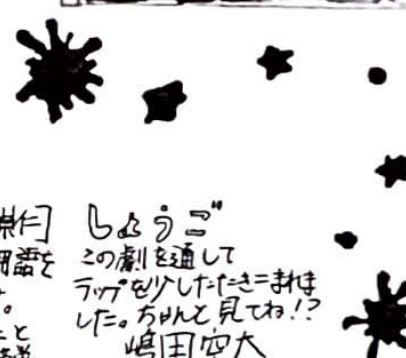 しょうご
この劇を通して
ラップを少したたきこまれま
した。ちゃんと見てね!?
嶋田空大
用語を
こと